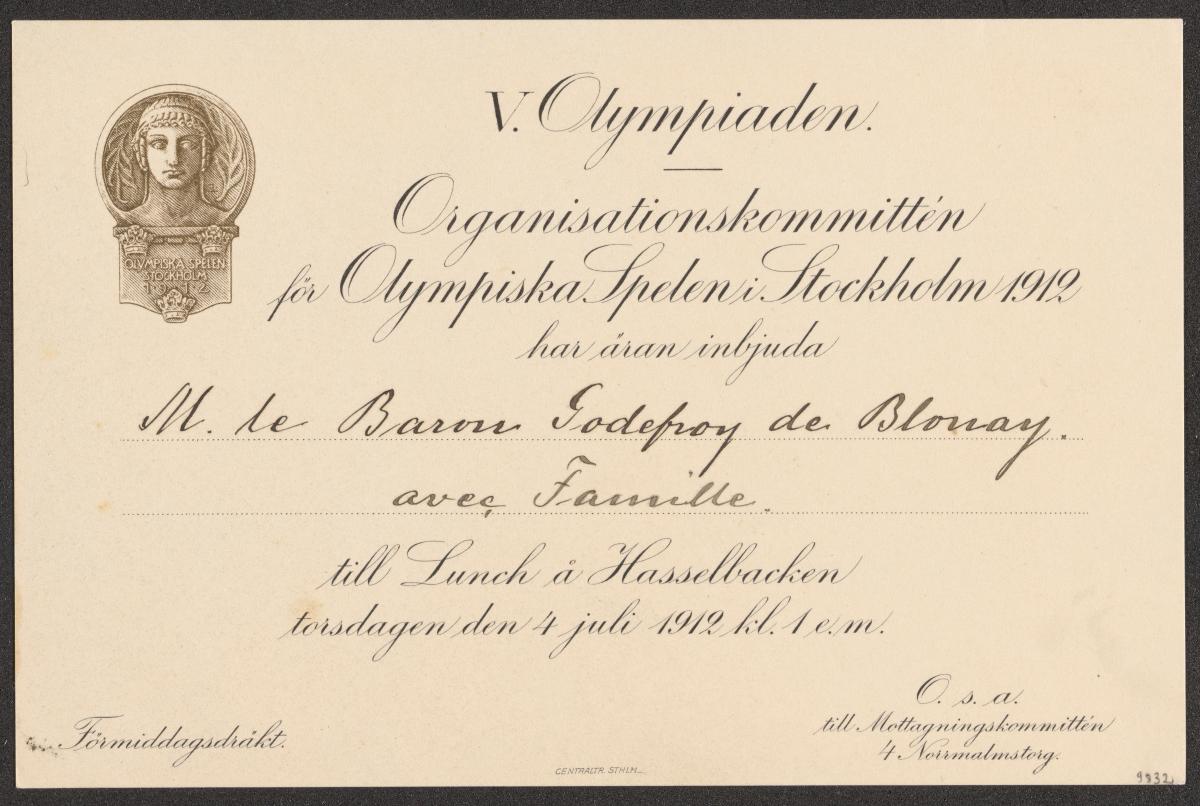 V. Olympiaden.
Organisationskommittén
för Olympiska Spelen i Stockholm 1912
har äran inbjuda
M. le Baron Godefroy de Blonay.
aveç Famille.
till Lunch å Hasselbacken
torsdagen den 4 juli 1912 kl. 1 e.m.
O. s. a.
till Mottagningskommittén
4 Norrmalmstorg.
Förmiddagsdräkt.
OLYMPISKA SPELEN
STOCKHOLM
1912
CENTRALTR. STHLM.
9832